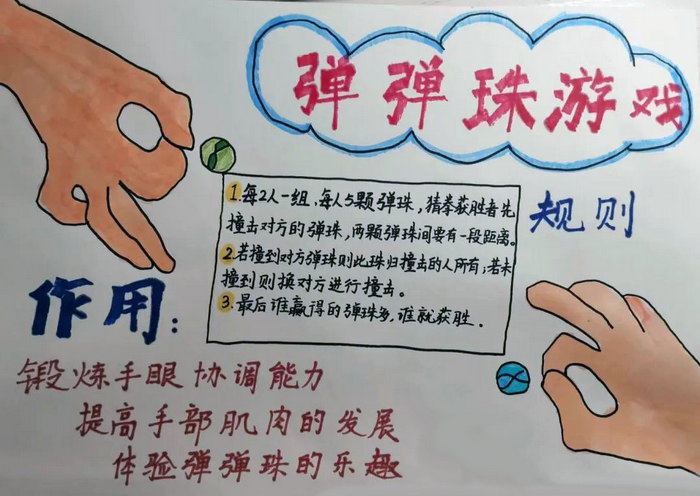 弹弹珠游戏
规则
1.每2人一组、每人5颗弹珠，猜拳获胜者先
撞击对方的弹珠，两颗弹珠间要有一段距离。
2.若撞到对方弹珠则此珠归撞击的人所有；若未
撞到则换对方进行撞击。
3.最后谁赢得的弹珠多，谁就获胜．
作用：
锻炼手眼协调能力
提高手部肌肉的发展
体验弹弹珠的乐趣